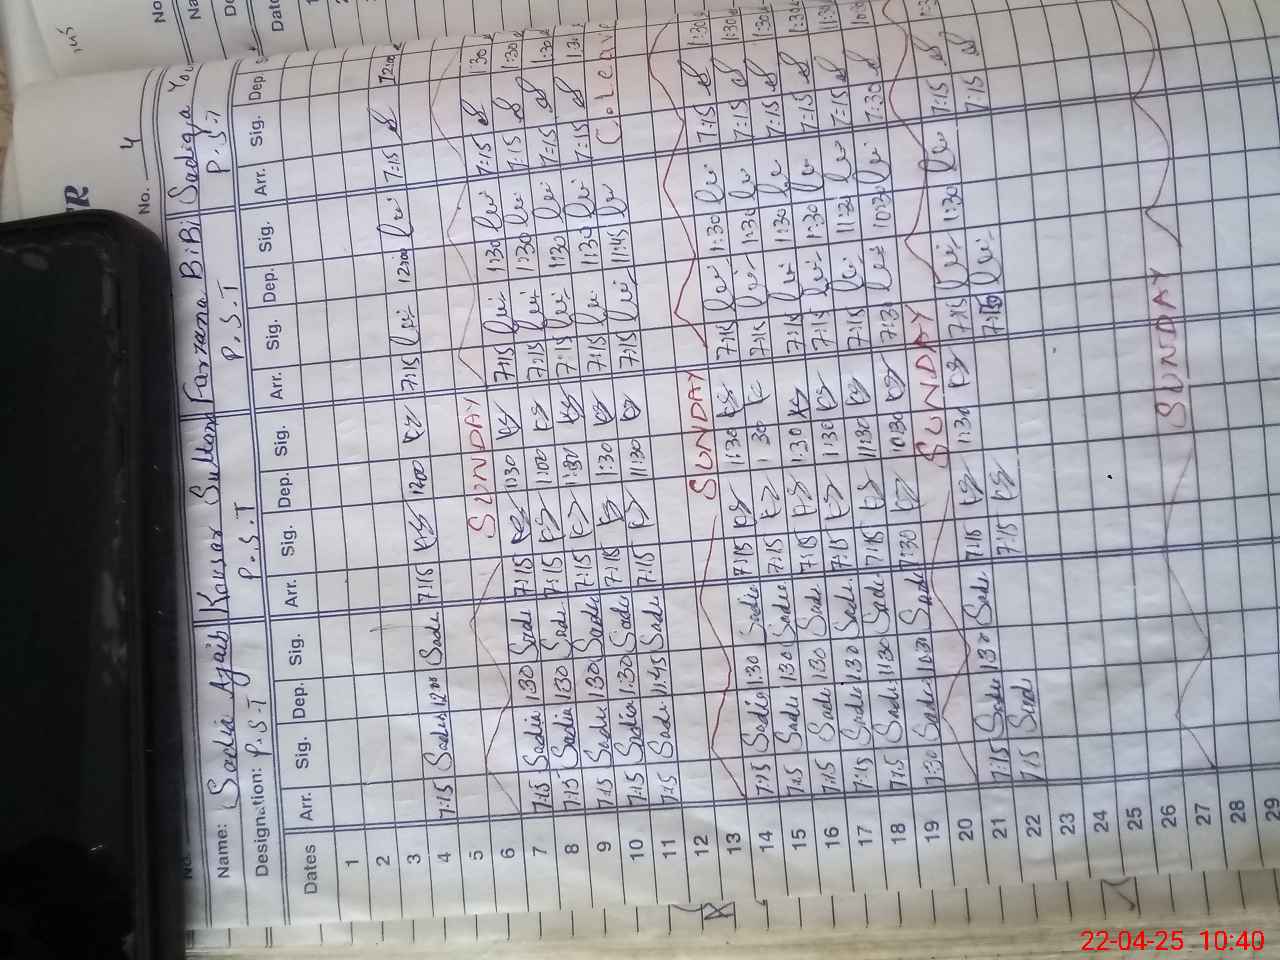 No. 4
Name: Sadia Azaib Kousar Sultana Farzana BiBi Sadiqa
Designation: P.S.T P.S.T P.S.T P.S.T
Dates Arr. Sig. Dep. Sig. Arr. Sig. Dep. Sig. Arr. Sig. Dep. Sig. Arr. Sig. Dep.
1
2
3
4 7:15 Sadia 12:00 Sadia 7:15 KS 1200 KS 7:15 1200 7:15 12:00
5
6 SUNDAY
7 7:15 Sadia 1:30 Sadia 7:15 KS 1:30 KS 7:15 1:30 7:15 1:30
8 7:15 Sadia 1:30 Sadia 7:15 KS 1:00 KS 7:15 1:30 7:15 1:30
9 7:15 Sadia 1:30 Sadia 7:15 KS 1:30 KS 7:15 1:30 7:15 1:30
10 7:15 Sadia 1:30 Sadia 7:15 KS 1:30 KS 7:15 1:30 7:15 1:30
11 7:15 Sadia 11:45 Sadia 7:15 KS 11:30 KS 7:15 11:45 C.Leave
12
13 SUNDAY
14 7:15 Sadia 1:30 Sadia 7:15 KS 1:30 KS 7:15 1:30 7:15 1:30
15 7:15 Sadia 1:30 Sadia 7:15 KS 1:30 KS 7:15 1:30 7:15 1:30
16 7:15 Sadia 1:30 Sadia 7:15 KS 1:30 KS 7:15 1:30 7:15 1:30
17 7:15 Sadia 1:30 Sadia 7:15 KS 1:30 KS 7:15 1:30 7:15 1:30
18 7:15 Sadia 11:30 Sadia 7:15 KS 11:30 KS 7:15 11:30 7:15 11:30
19 7:30 Sadia 10:30 Sadia 7:30 KS 10:30 KS 7:30 10:30 7:30 10:30
20 SUNDAY
21 7:15 Sadia 1:30 Sadia 7:15 KS 1:30 KS 7:15 1:30 7:15
22 7:15 Sadia 7:15 KS 7:15 7:15
23
24
25
26
27 SUNDAY
28
29
22-04-25 10:40